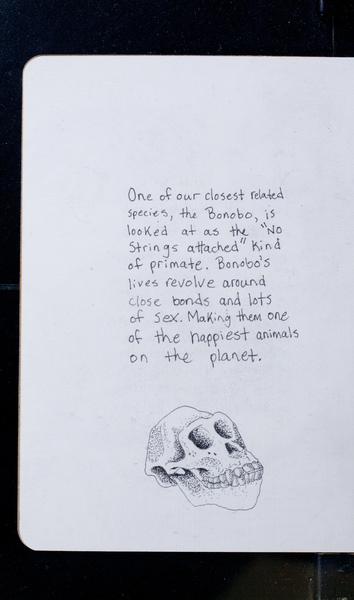 One of our closest related
species, the Bonobo, is
looked at as the "No
Strings attached" Kind
of primate. Bonobo's
lives revolve around
close bonds and lots
of sex. Making them one
of the happiest animals
on the planet.